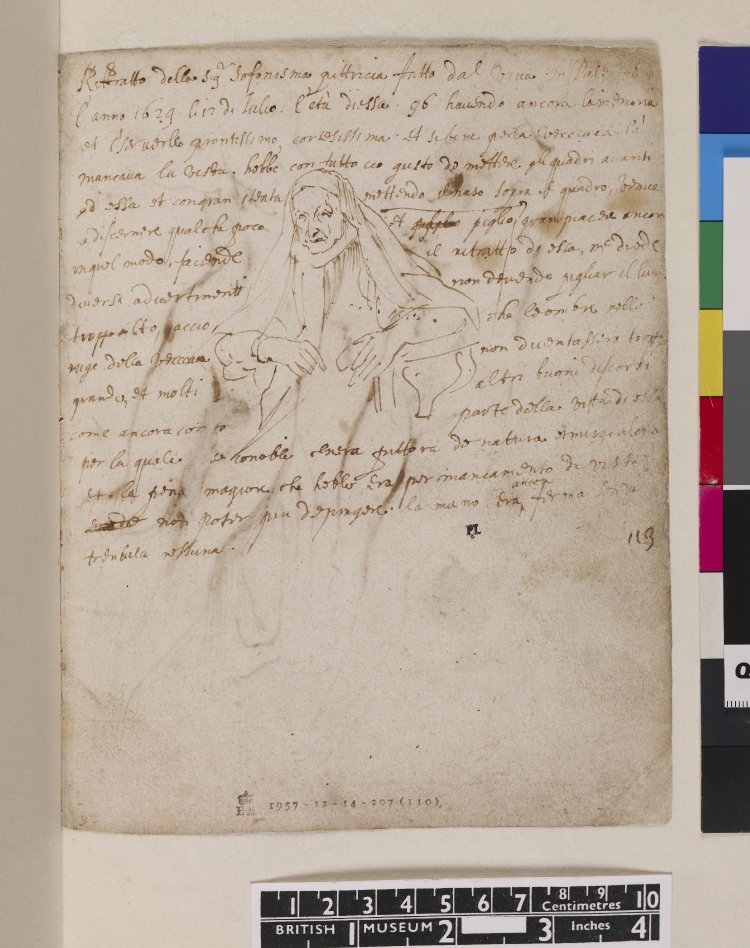 Rittratto della Sigra Sofonisma pittricia fatto dal vivo in Pal
l'anno 1629 li 12 di Julio. l'età di essa 96 havendo ancora la memoria
et il serverllo prontissimo, cortesissima et sibene per la vecciaia li
mancava la vista. hebbe con tutto cio gusto de mettere gli quadri avanti
ad essa et con gran stenta mettendo il naso sopra il quadro, venne
a discernere qualche poco et piglio gran piacer ancora
in quel modo, facendo il ritratto de essa, me diede
diversi advertimenti non devendo pigliar il lume
troppo alto, accio che le ombre nelle
ruge della vecciaia non diventassero troppo
grande, et molti altri buoni discorsi
come ancora conto parte della vita di essa
per la quale se conobbe chera pittora de natura et miraculosa
et la pena magiore che hebbe era per mancamento di vista
non poter piu depingere. la mano era ancora ferma senza
trembula nessuna.
PL
113
BM 1957-12-14-207 (110)
1 2 3 4 5 6 7 8 9 10
Centimetres
BRITISH 1 MUSEUM 2 3 Inches 4